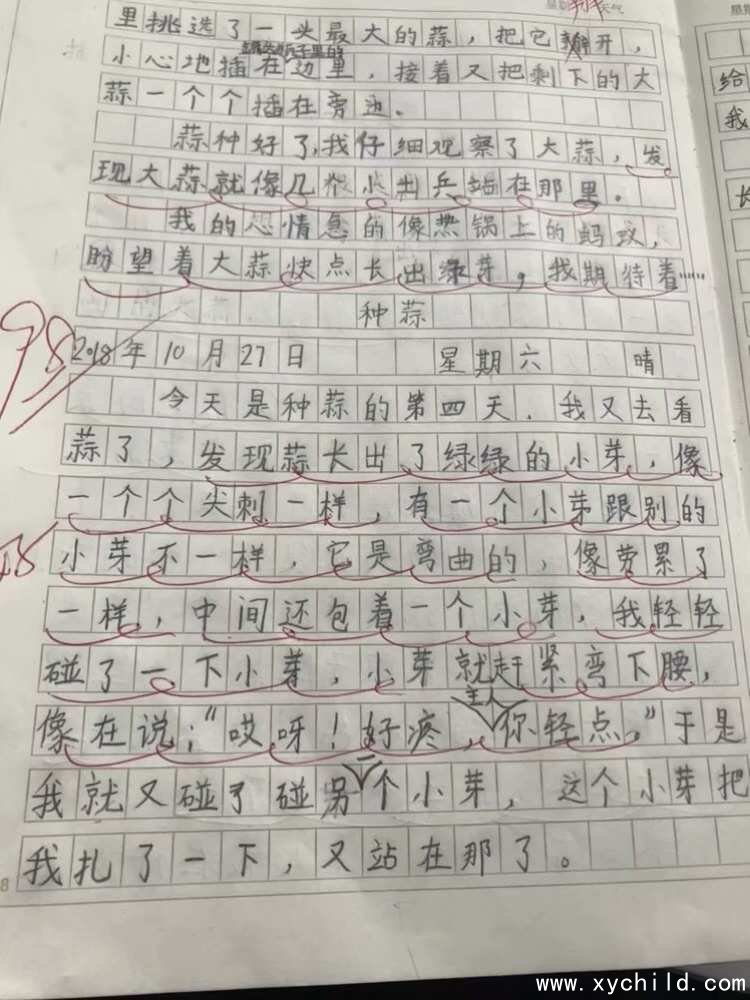 星期 天气
里挑选了一头最大的蒜，把它掰开，
小心地插在边里，接着又把剩下的大
蒜一个个插在旁边。
蒜种好了，我仔细观察了大蒜，发
现大蒜就像几个小士兵站在那里。
我的心情急的像热锅上的蚂蚁，
盼望着大蒜快点长出绿芽，我期待着……
种蒜
98
2018年10月27日 星期六 晴
今天是种蒜的第四天．我又去看
蒜了，发现蒜长出了绿绿的小芽，像
一个个尖刺一样，有一个小芽跟别的
小芽不一样，它是弯曲的，像劳累了
一样，中间还包着一个小芽，我轻轻
碰了一下小芽，小芽就赶紧弯下腰，
主人
像在说：“哎呀！好疼，你轻点，”于是
我就又碰了碰另一个小芽，这个小芽把
我扎了一下，又站在那了。
8
给
我
www.xychild.com